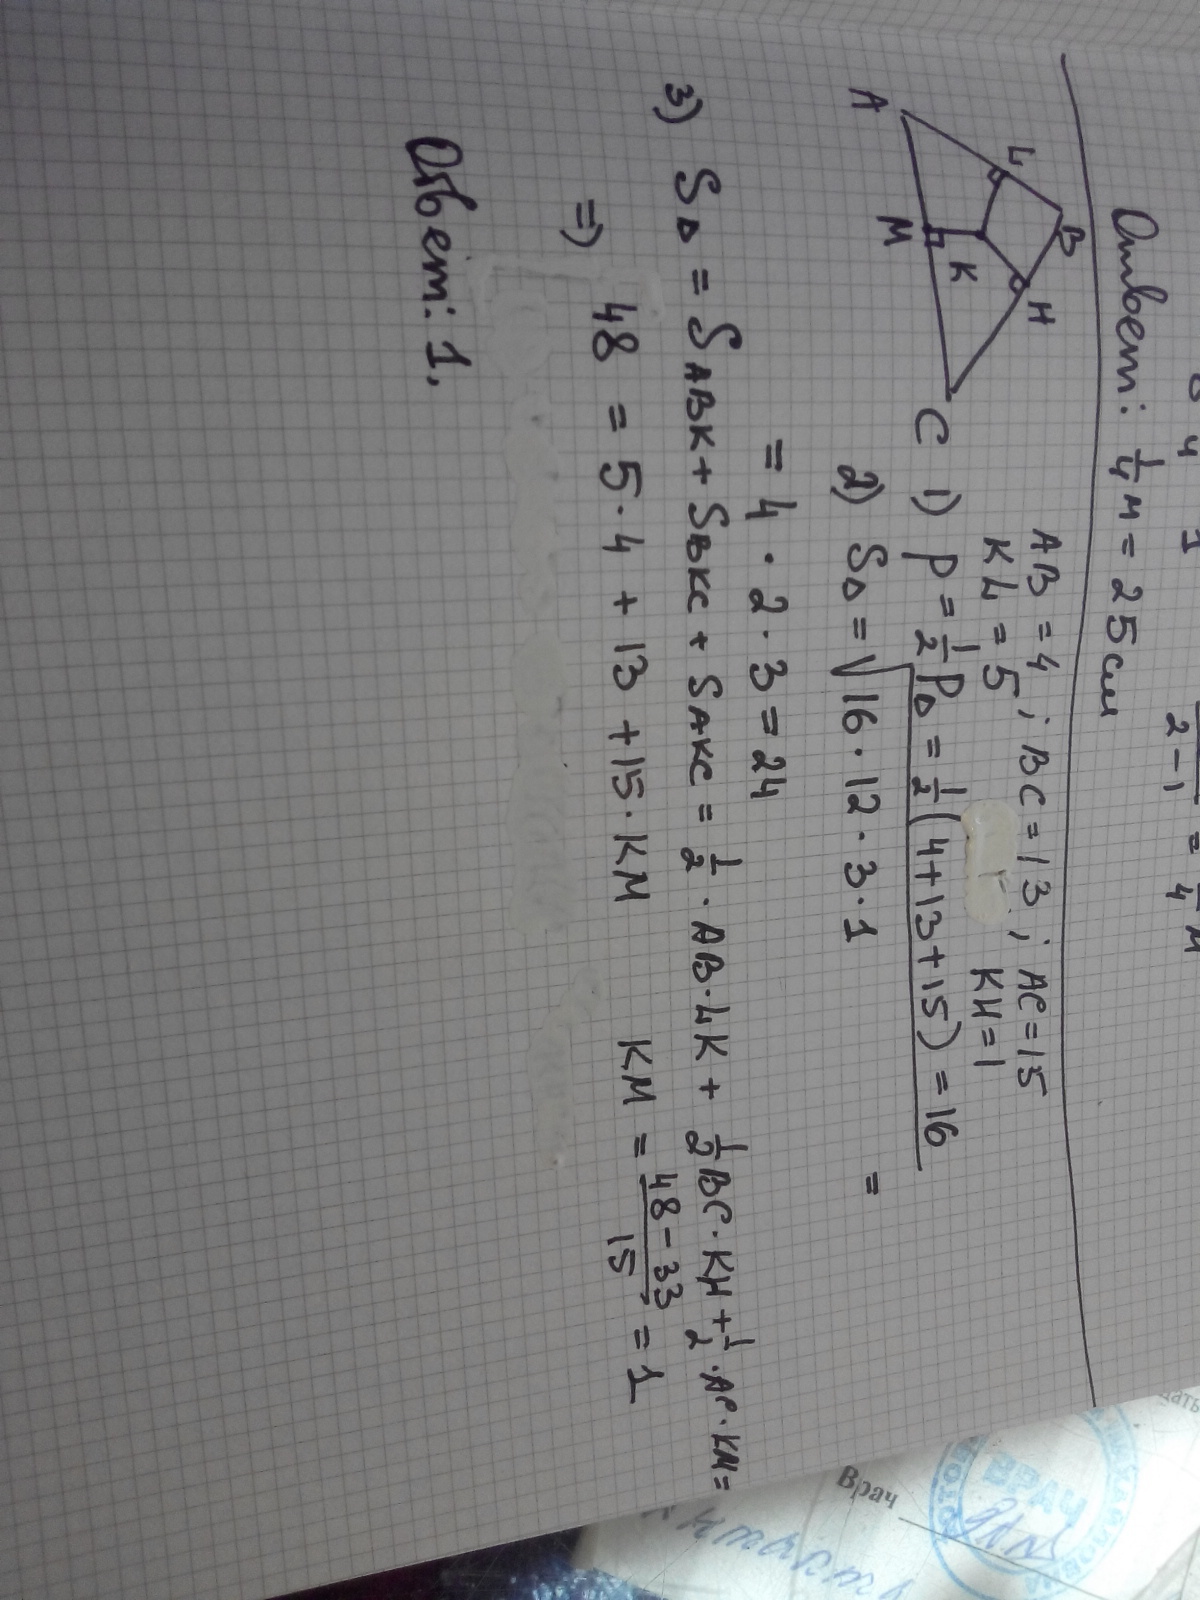 6 4 1 2-1 = 1/4 м
Ответ: 1/4 м = 25 см
AB = 4 ; BC = 13 ; AC = 15
KL = 5 KH = 1
B
L
H
K
A
M
C
1) p = 1/2 P∆ = 1/2 (4+13+15) = 16
2) S∆ = √16·12·3·1 =
= 4·2·3 = 24
3) S∆ = SABK + SBKC + SAKC = 1/2 · AB·LK + 1/2 BC·KH + 1/2 · AC·KM =
=) 48 = 5·4 + 13 + 15·KM KM = 48-33/15 = 1
Ответ: 1.
Врач
ВРАЧ